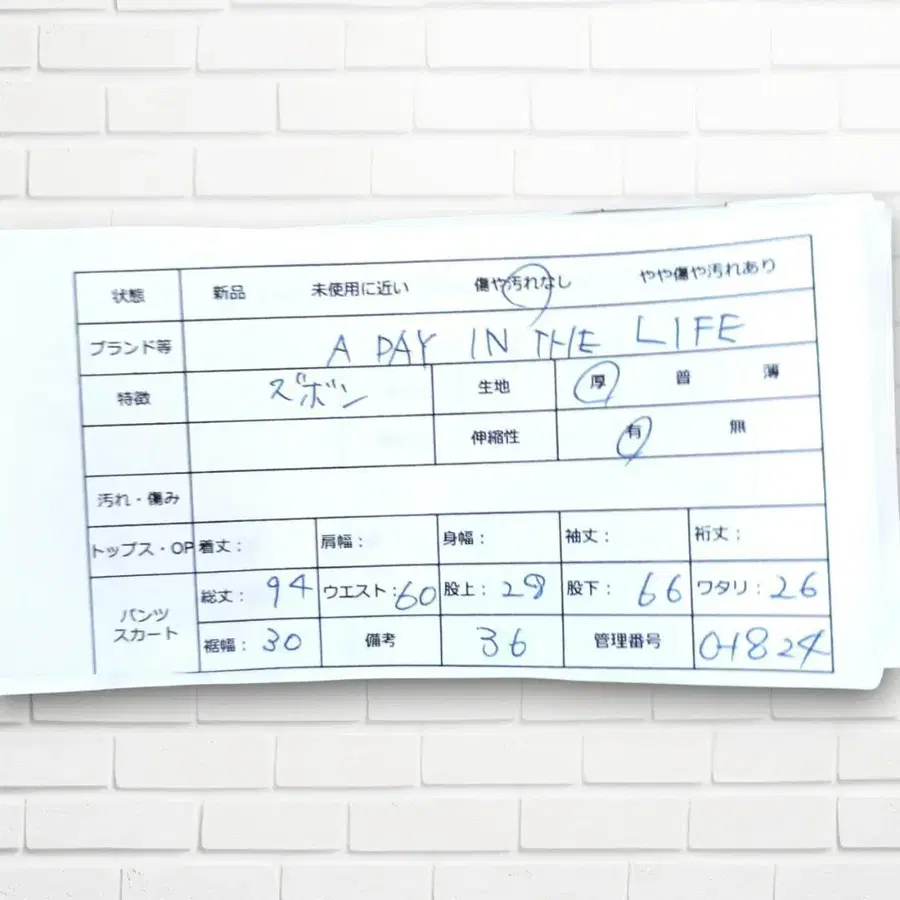 状態 新品 未使用に近い 傷や汚れなし やや傷や汚れあり
ブランド等 A DAY IN THE LIFE
特徴 ズボン 生地 厚 普 薄
伸縮性 有 無
汚れ・傷み
トップス・OP 着丈： 肩幅： 身幅： 袖丈： 裄丈：
パンツ
スカート
総丈：94 ウエスト：60 股上：28 股下：66 ワタリ：26
裾幅：30 備考 36 管理番号 O-1824